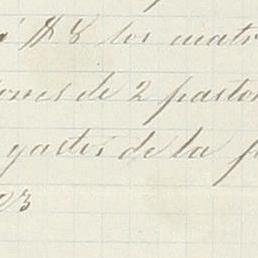 á $8 los cuatr
ones de 2 pasto
y gastos de la f
23